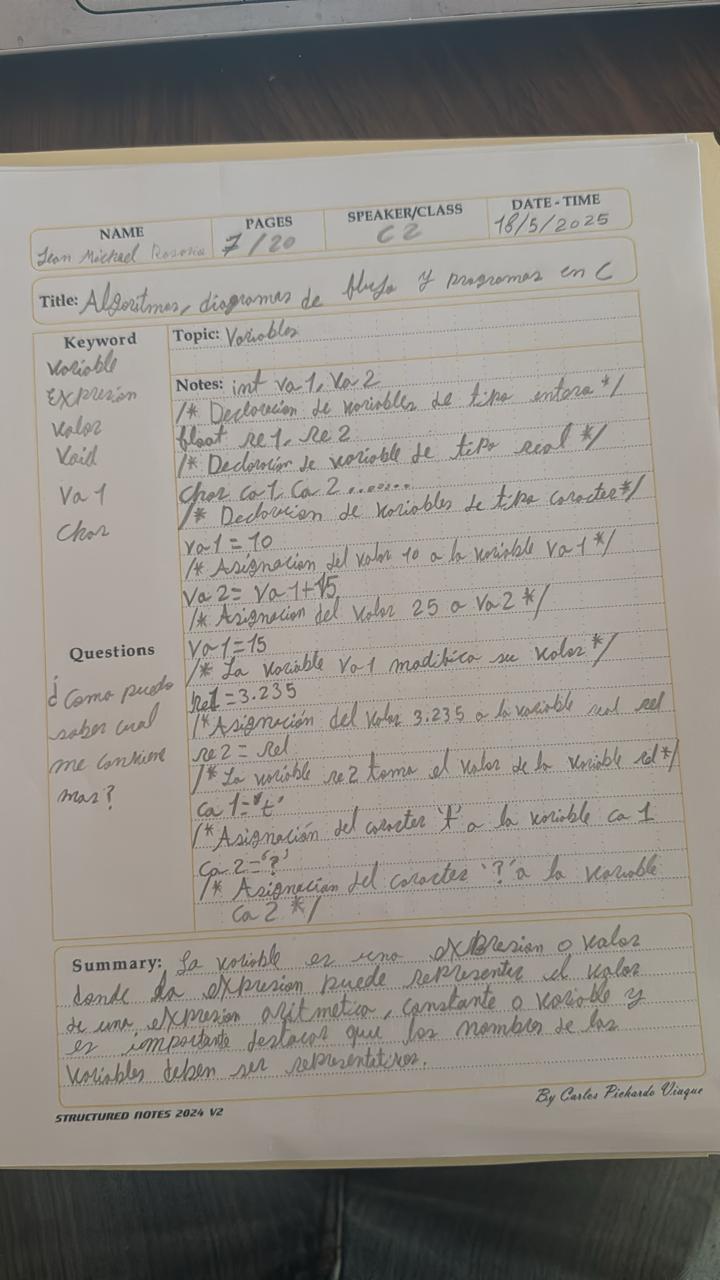 NAME PAGES SPEAKER/CLASS DATE - TIME
Jean Michael Rosario 7/20 C2 18/5/2025
Title: Algoritmos, diagramas de flujo y programas en C
Keyword
variable
Expresion
valor
Void
Va 1
Char
Questions
¿Como puedo
saber cual
me conviene
mas?
Topic: Variables
Notes: int va 1, Va 2
/* Declaracion de variables de tipo entera */
float re 1, re 2
/* Declaracion de variable de tipo real */
Char ca 1, Ca 2 ........
/* Declaracion de variables de tipo caracter*/
va 1 = 10
/* Asignacion del valor 10 a la variable Va 1 */
Va 2 = Va 1+15
/* Asignacion del valor 25 a Va 2 */
Va 1=15
/* La variable Va 1 modifica su valor */
Re1 = 3.235
/*Asignación del valor 3.235 a la variable real re1
re 2 = re1
/* La variable re 2 toma el valor de la variable re1*/
Ca 1='t'
/*Asignación del caracter 't' a la variable ca 1
Ca 2='?'
/* Asignacian del caracter '?' a la variable
Ca 2 */
Summary: La variable es una expresion o valor
donde la expresion puede representar el valor
de una expresion aritmetica, constante o variable y
es importante destacar que los nombres de las
variables deben ser representativos.
STRUCTURED NOTES 2024 V2
By Carlos Pichardo Viuque